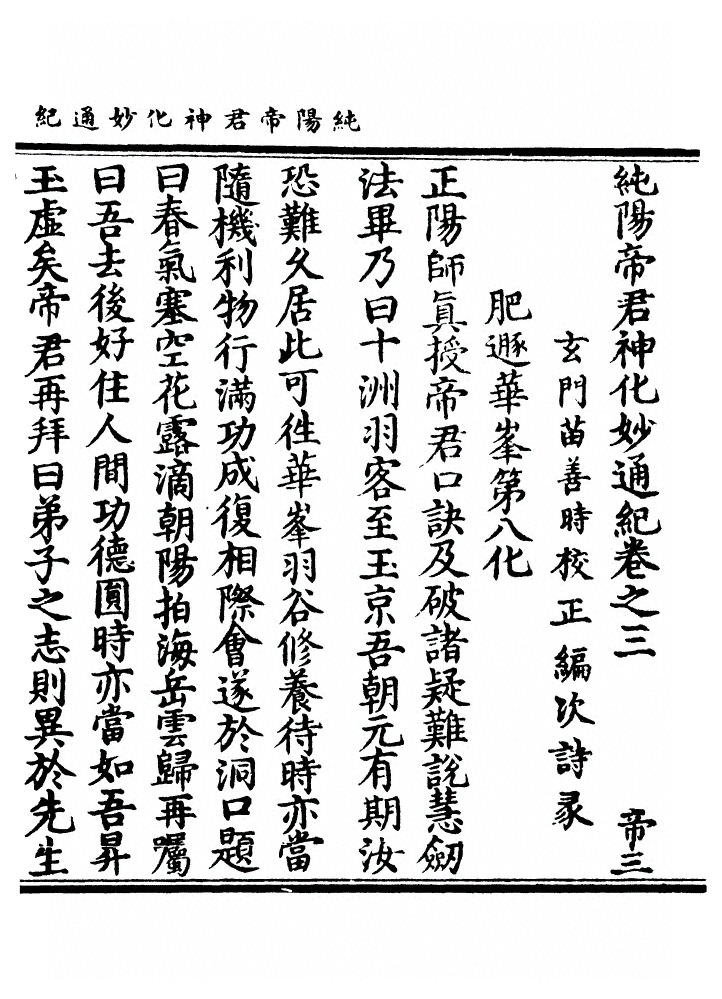 純陽帝君神化妙通紀
純陽帝君神化妙通紀卷之三　帝三
玄門苗善時校正編次詩彖
肥遯華峯第八化
正陽師眞授帝君口訣及破諸疑難說慧劒
法畢乃曰十洲羽客至玉京吾朝元有期汝
恐難久居此可徃華峯羽谷修養待時亦當
隨機利物行滿功成復相際會遂於洞口題
曰春氣塞空花露滴朝陽拍海岳雲歸再囑
曰吾去後好住人間功德圓時亦當如吾昇
玉虛矣帝君再拜曰弟子之志則異於先生